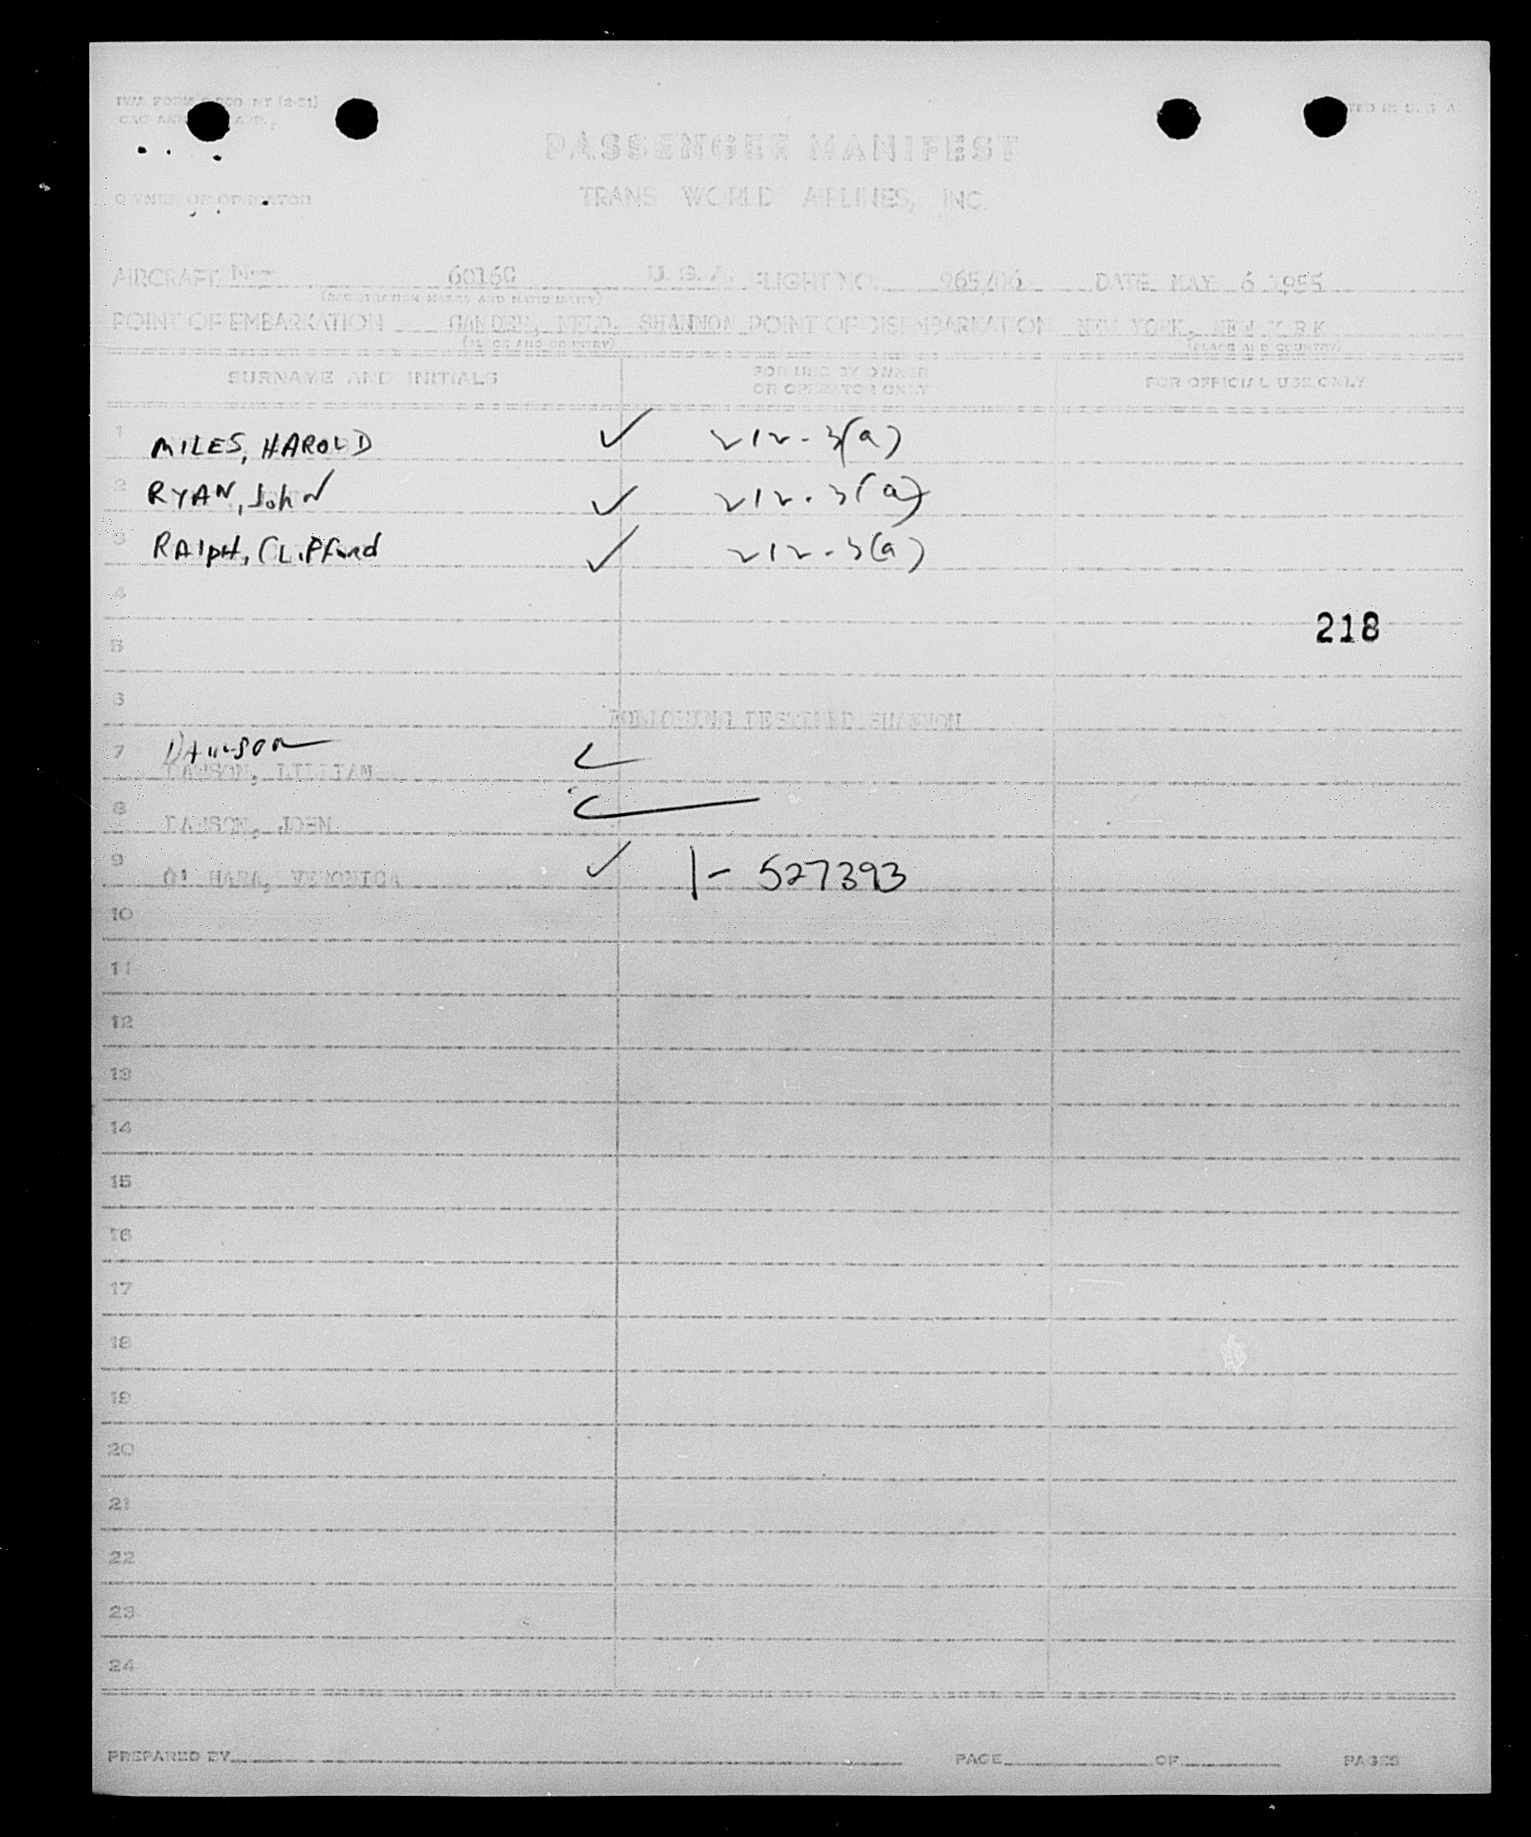 PASSENGER MANIFEST
OWNER OR OPERATOR TRANS WORLD AIRLINES, INC.
AIRCRAFT 6016C U. S. A. FLIGHT NO. DATE MAY 6 1955
(REGISTRATION MARKS AND NATIONALITY)
POINT OF EMBARKATION GANDER, NFLD. SHANNON POINT OF DISEMBARKATION NEW YORK, NEW YORK
(PLACE AND COUNTRY) (PLACE AND COUNTRY)
SURNAME AND INITIALS FOR USE BY OWNER OR OPERATOR ONLY FOR OFFICIAL USE ONLY
1 MILES, HAROLD ✓ 212-3(a)
2 RYAN, John ✓ 212-3(a)
3 RAlpH, CLifford ✓ 212-3(a)
4
218
5
6
FOLLOWING DESTINED SHANNON
7 DAwson
DAWSON, LILLIAN
8 DAWSON, JOHN
9 O' HARA, VERONICA ✓ 1- 527393
10
11
12
13
14
15
16
17
18
19
20
21
22
23
24
PREPARED BY PAGE OF PAGES